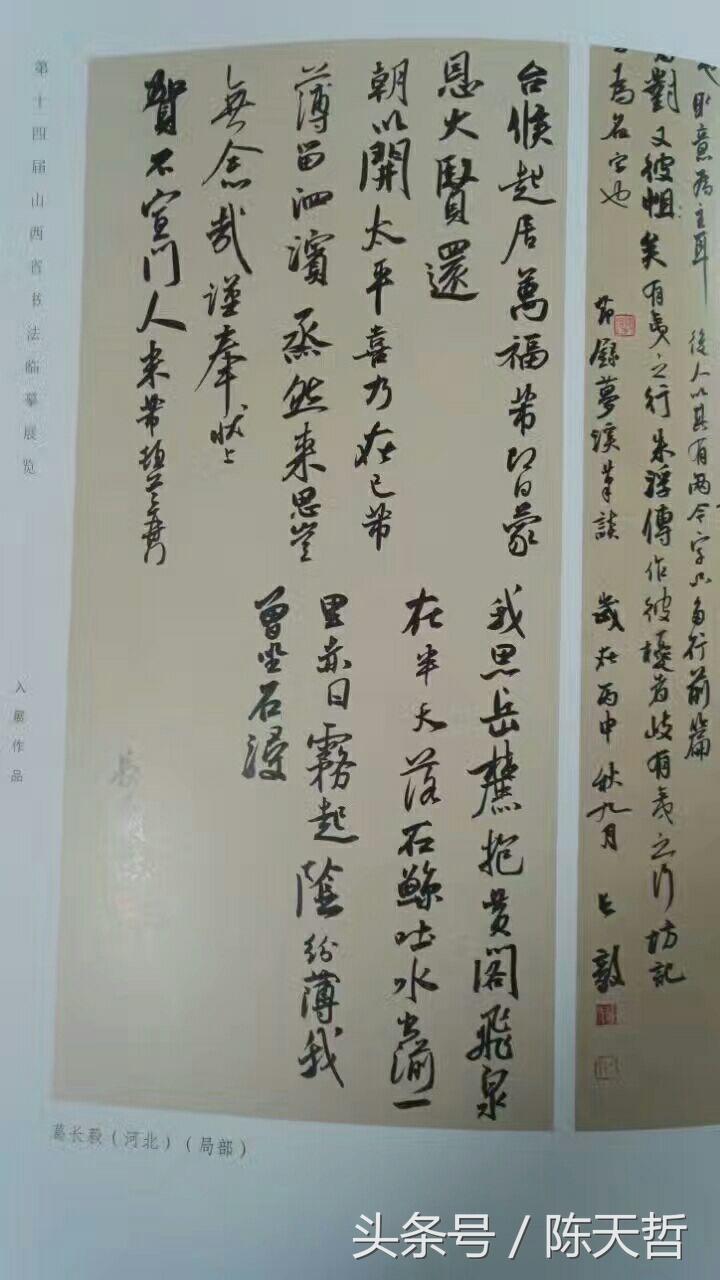 意為主耳 後人以其有两今字只為行前篇
對又彼岨矣有夷之行朱浮傳作彼岨者岐有夷之行坊記
為名字也
節錄夢溪筆談 歲在丙申秋九月 長毅
台候起居萬福芾即日蒙
恩大賢還
朝以開太平喜乃在已芾
薄留泗濱蒸然来思豈
無念哉謹奉狀上
賀不宣門人米芾頓首
我思岳麓抱黄閣飛泉
在半天落石鯨吐水出湔一
里赤日霧起陰紛薄我
曾坐石浸
第十四届山西省书法临摹展览
入展作品
葛长毅(河北)(局部)
头条号 / 陈天哲